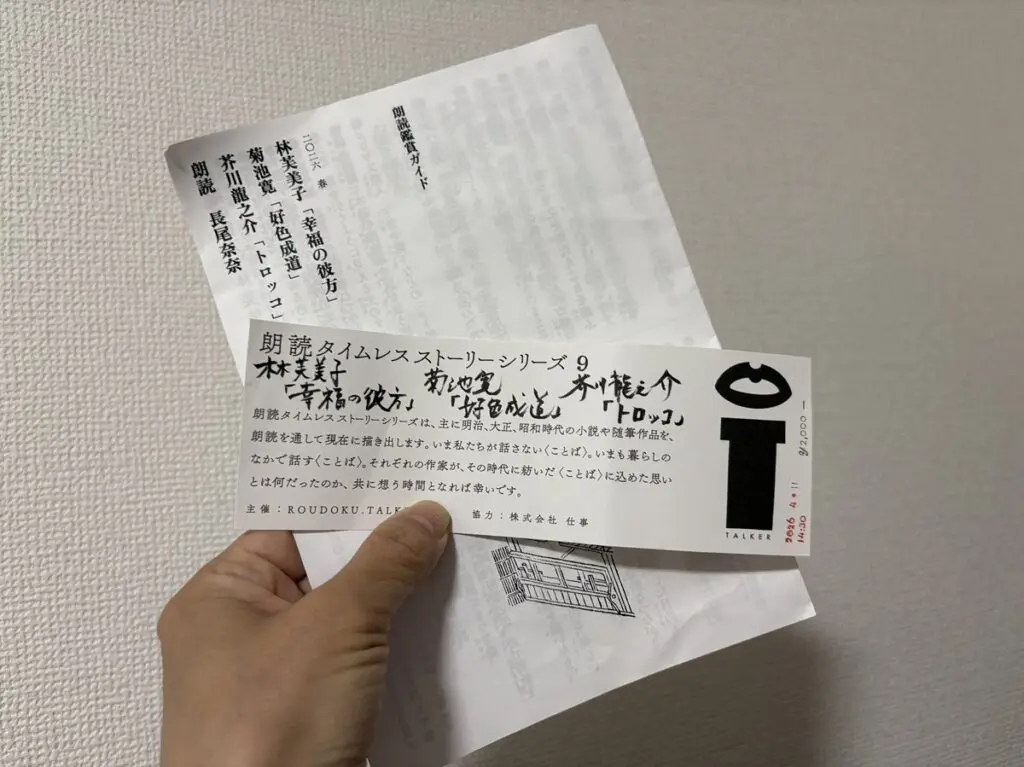 朗読鑑賞ガイド
二〇二六 春
林芙美子「幸福の彼方」
菊池寛「好色成道」
芥川龍之介「トロッコ」
朗読 長尾奈奈
朗読タイムレス ストーリーシリーズ 9
林芙美子 菊池寛 芥川龍之介
「幸福の彼方」 「好色成道」 「トロッコ」
朗読タイムレス ストーリーシリーズは、主に明治、大正、昭和時代の小説や随筆作品を、
朗読を通して現在に描き出します。いま私たちが話さない〈ことば〉。いまも暮らしの
なかで話す〈ことば〉。それぞれの作家が、その時代に紡いだ〈ことば〉に込めた思い
とは何だったのか、共に想う時間となれば幸いです。
主催：ROUDOKU.TALK 協力：株式会社 仕事
TALKER
2026 4.11 ¥2,000-
14:30